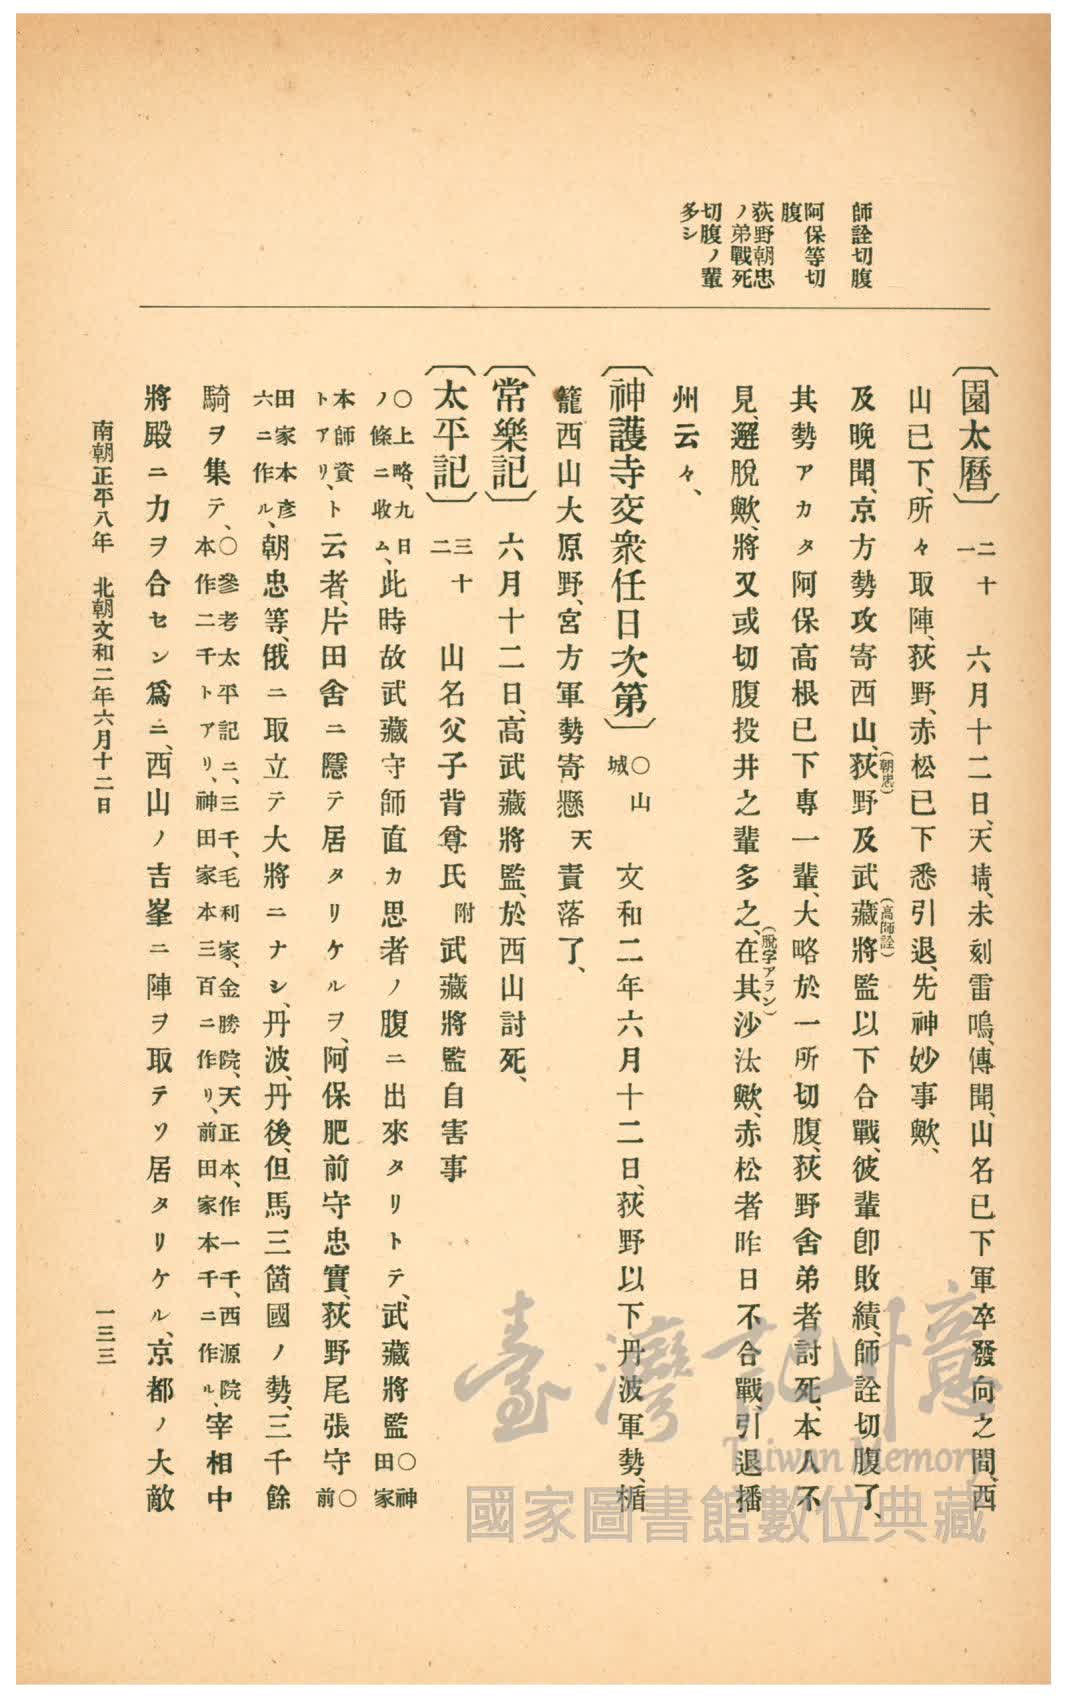 師詮切腹
阿保等切
腹
荻野朝忠
ノ弟戰死
切腹ノ輩
多シ
〔園太曆〕 二十一 六月十二日、天晴、未刻雷鳴、傳聞、山名已下軍卒發向之間、西
山已下、所々取陣、荻野、赤松已下悉引退、先神妙事歟、
及晚聞、京方勢攻寄西山、荻野(朝忠)及武藏將監(高師詮)以下合戰、彼輩卽敗績、師詮切腹了、
其勢アカタ阿保高根已下專一輩、大略於一所切腹、荻野舍弟者討死、本人不
見、遁脫歟、將又或切腹投井之輩多之、在其(脫字アラン)沙汰歟、赤松者昨日不合戰、引退播
州云々、
〔神護寺交衆任日次第〕 ○山城 文和二年六月十二日、荻野以下丹波軍勢、楯
籠西山大原野、宮方軍勢寄懸天責落了、
〔常樂記〕 六月十二日、高武藏將監、於西山討死、
〔太平記〕 三十二 山名父子背尊氏附武藏將監自害事
○上略、九日ノ條ニ收ム、此時故武藏守師直カ思者ノ腹ニ出來タリトテ、武藏將監○神田家
本師資トアリ、ト云者、片田舍ニ隱テ居タリケルヲ、阿保肥前守忠實、荻野尾張守○前
田家本彥六ニ作ル、朝忠等、俄ニ取立テ大將ニナシ、丹波、丹後、但馬三箇國ノ勢、三千餘
騎ヲ集テ、○參考太平記ニ、三千、毛利家、金勝院、天正本、作一千、西源院本作二千トアリ、神田家本三百ニ作リ、前田家本千ニ作ル、宰相中
將殿ニ力ヲ合セン爲ニ、西山ノ吉峯ニ陣ヲ取テソ居タリケル、京都ノ大敵
南朝正平八年 北朝文和二年六月十二日
一三三
臺灣記憶
Taiwan Memory
國家圖書館數位典藏